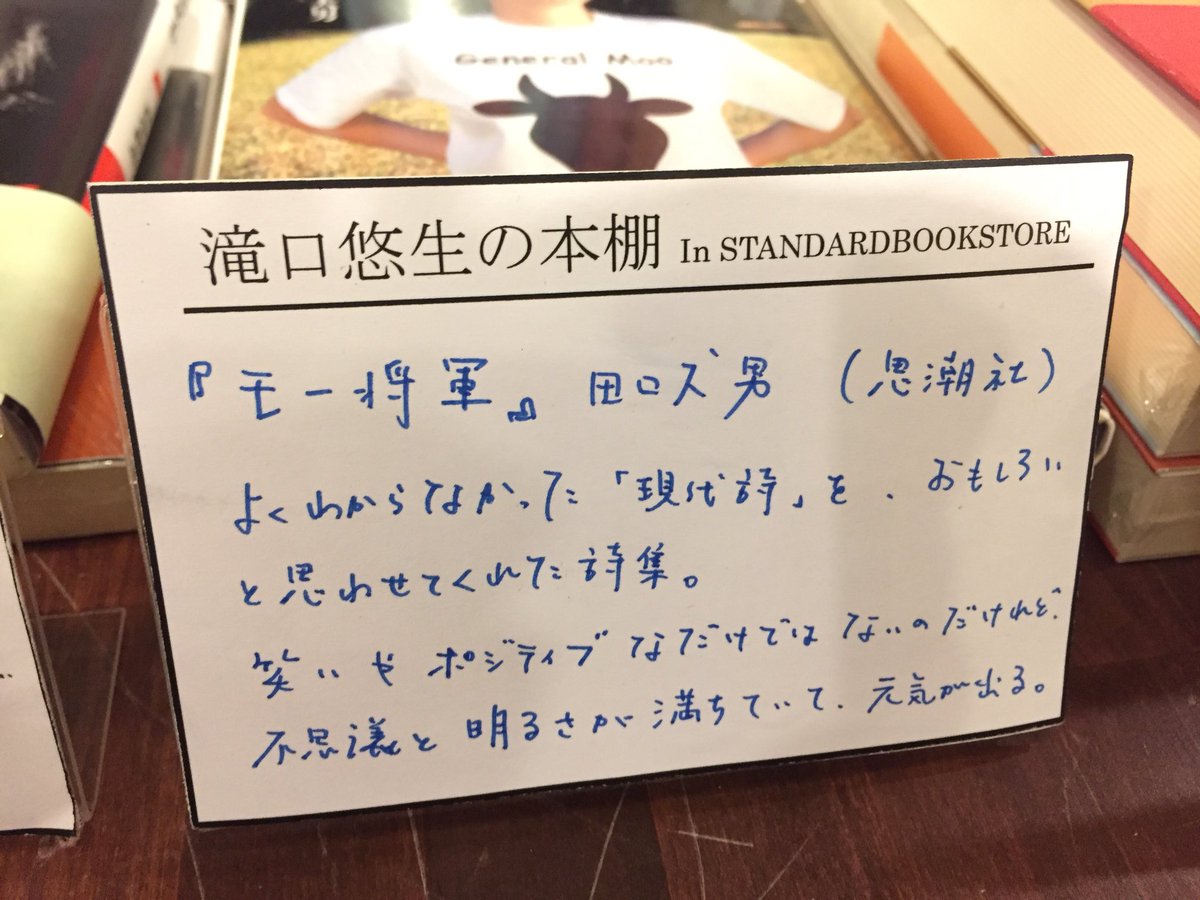 General Moo
滝口悠生の本棚 In STANDARDBOOKSTORE
『モー将軍』 田口犬男 (思潮社)
よくわからなかった「現代詩」を、おもしろい
と思わせてくれた詩集。
笑いやポジティブなだけではないのだけれど、
不思議と明るさが満ちていて、元気が出る。